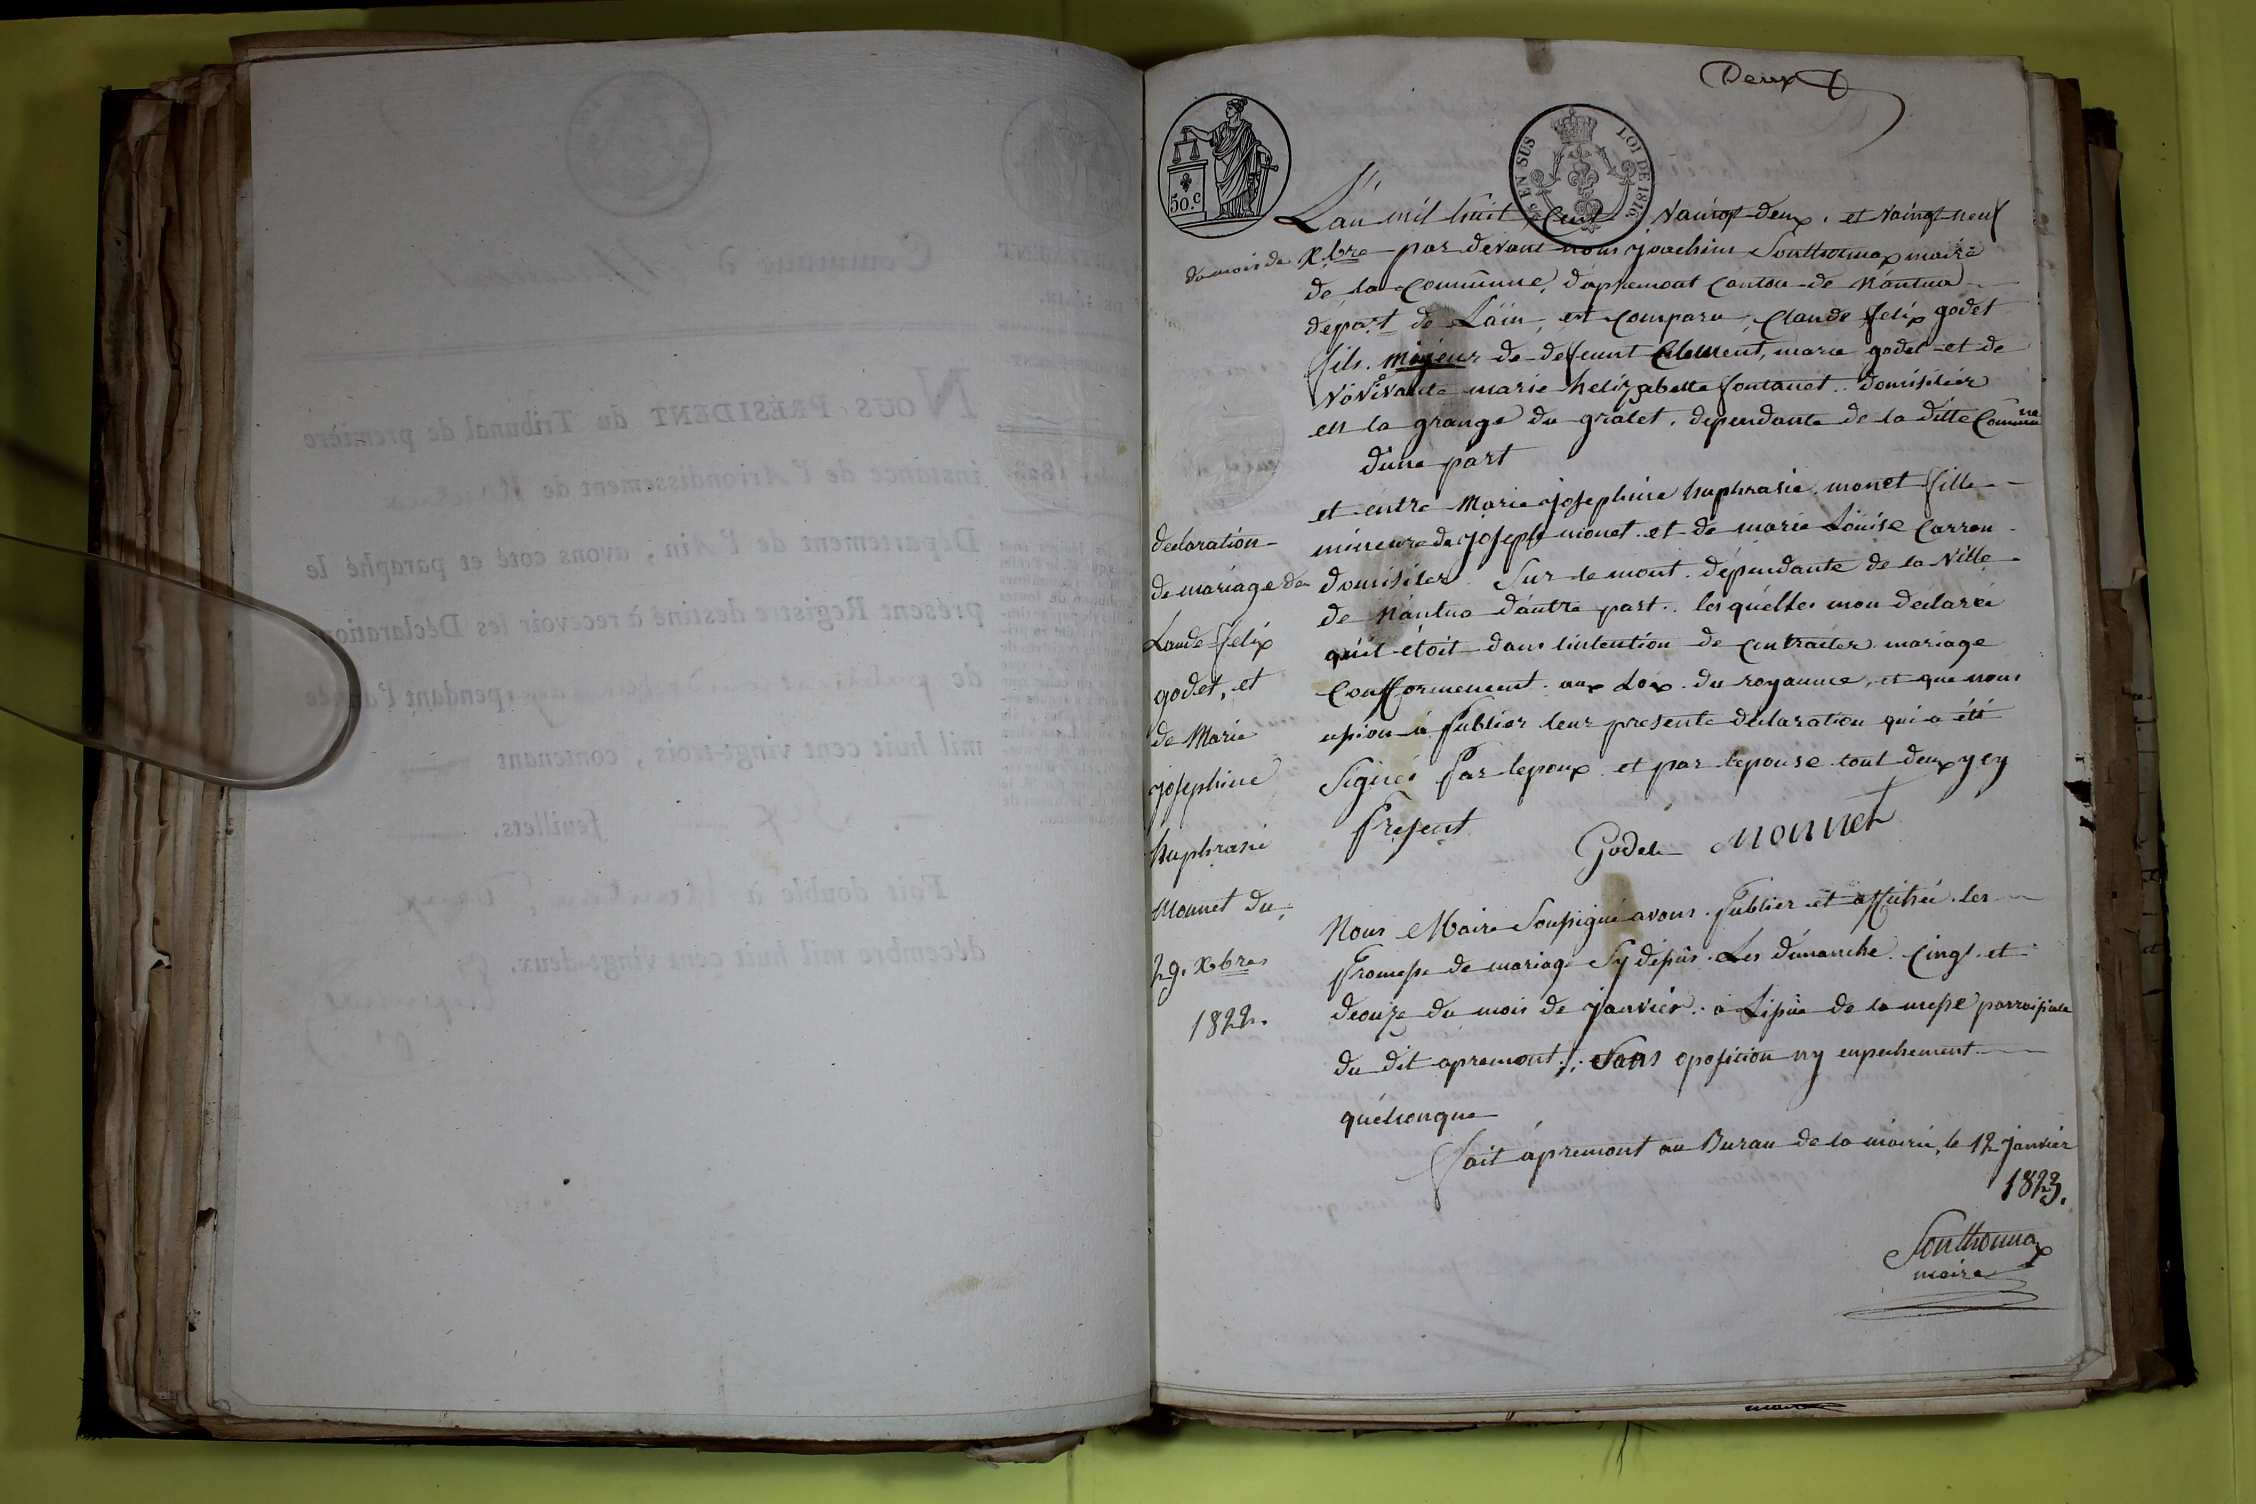 Deux
50.c
EN SUS
LOI DE 1816
L'an mil huit Cent vaingt deux. et vaingt neuf
du mois de Xbre par devant nous joachim Sonthonnax maire
de la Commune, d'apremont Canton de Nantua
depart de Lain, est Comparu, Claude felix godet
fils. majeur de defeunt Clement, marie godet et de
vivante marie helizabette fontanet. domisilier
en la grange du gralet. dependante de la ditte Commune
dune part
et entre Marie josephine huphrasie. monet fille
mineure de joseph monet. et de marie Louise Carron
domisilier. Sur le mont. dépendante de la Ville
de Nantua d'autre part. les quélles mon declarée
quil étoit dans lintention de Contracter mariage
Confformement. aux Loix. du royaume, et que nous
a publier leur presente declaration qui a été
Signée par lepoux. et par lepouse tout deux y ey
present
Godet Monnet
declaration
de mariage de
Laude felix
godet, et
de Marie
josephine
huphrasie
Monnet du,
29. Xbres
1822.
Nous Maire Soussigné avons. publier et affichée. les
promesse de mariage Sy dépûs. Les dimanche Cinq. et
douze du mois de janvier. a Lissue de la messe parroissiale
du dit apremont; Sans oposition ny enpechement
quélconque
fait apremont au Burau de la mairie, le 12 janvier
1823.
Sonthonnax
maire
NOUS PRÉSIDENT du Tribunal de première
instance de l'Arrondissement de Nantua
Département de l'Ain, avons coté et paraphé le
présent Registre destiné à recevoir les Déclarations
de pendant l'année
mil huit cent vingt-trois, contenant
feuillets.
Fait double à Nantua,
décembre mil huit cent vingt-deux.